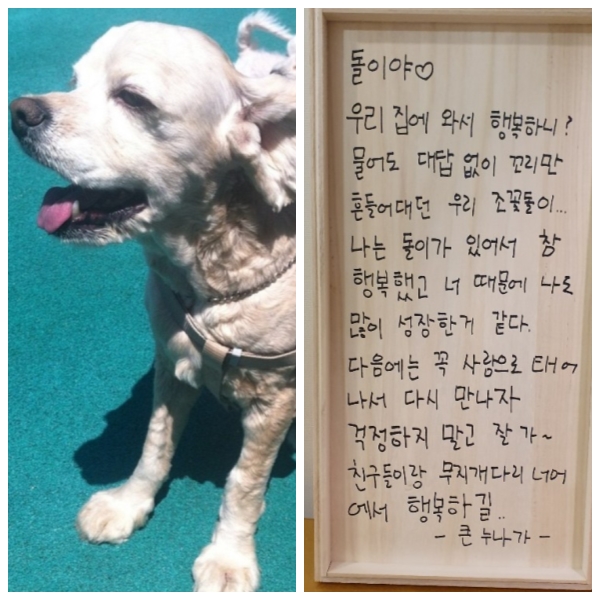 돌이야♡
우리 집에 와서 행복하니?
물어도 대답 없이 꼬리만
흔들어대던 우리 조꽃돌이...
나는 돌이가 있어서 참
행복했고 너 때문에 나도
많이 성장한거 같다.
다음에는 꼭 사람으로 태어
나서 다시 만나자
걱정하지 말고 잘 가~
친구들이랑 무지개다리 너머
에서 행복하길..
- 큰 누나가 -